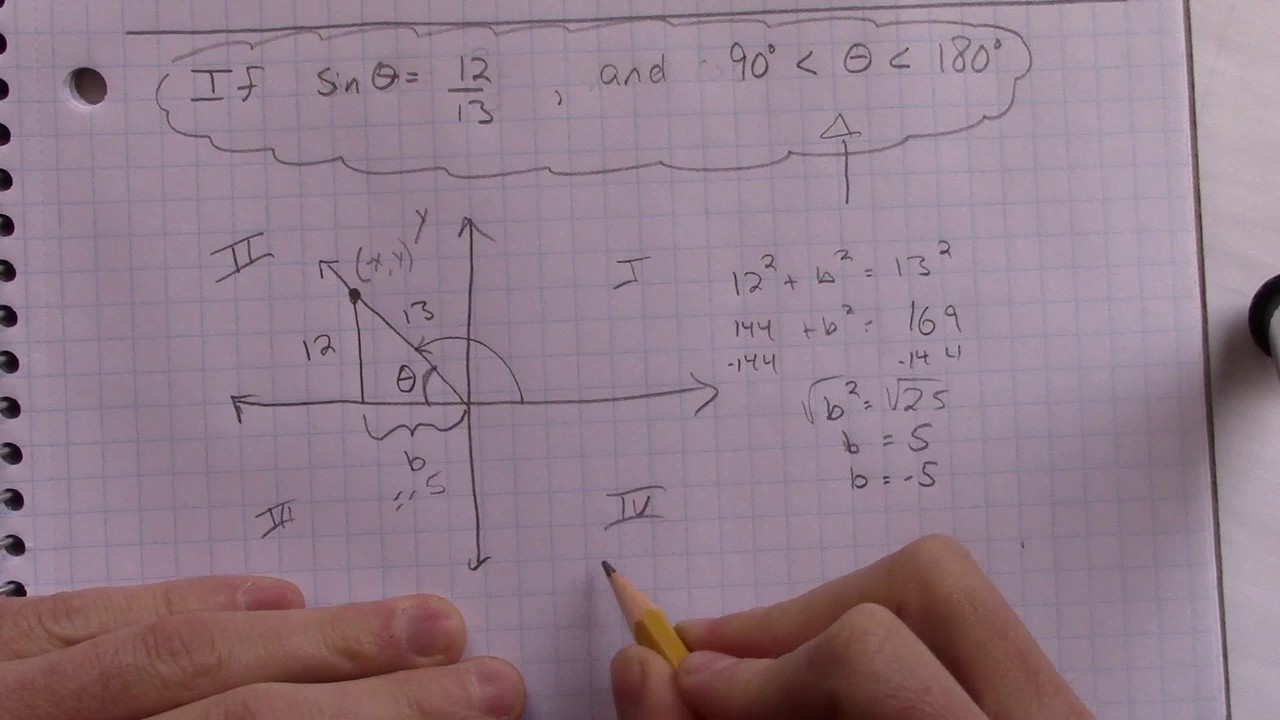 If sin θ = 12/13 , and 90° < θ < 180°
II
(x,y)
y
I
13
12
θ
b
=-5
III
IV
12² + b² = 13²
144 + b² = 169
-144 -144
√b² = √25
b = 5
b = -5